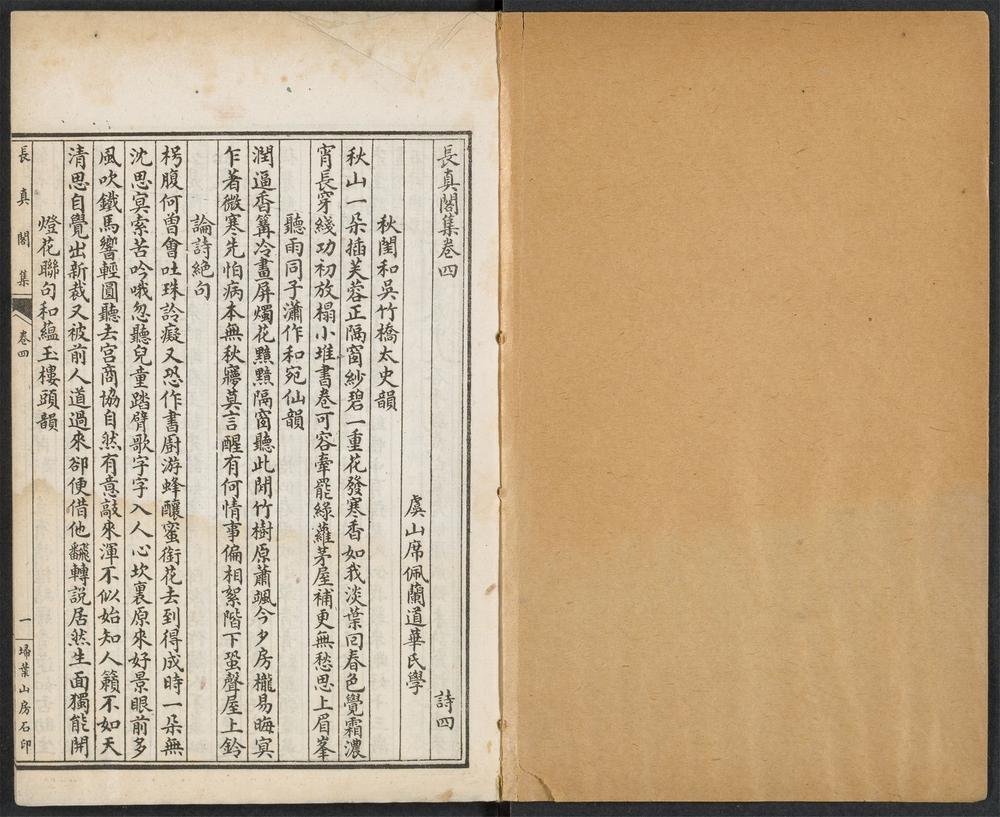 長真閣集卷四
詩四
虞山席佩蘭道華氏學
秋閨和吳竹橋太史韻
秋山一朵插芙蓉正隔窗紗碧一重花發寒香如我淡葉回春色覺霜濃
宵長穿綫功初放榻小堆書卷可容牽罷綠蘿茅屋補更無愁思上眉峯
聽雨同子瀟作和宛仙韻
潤逼香篝冷畫屏燭花黯黯隔窗聽此閒竹樹原蕭颯今夕房櫳易晦冥
乍著微寒先怕病本無秋寤莫言醒有何情事偏相絮階下蛩聲屋上鈴
論詩絕句
枵腹何曾會吐珠詅癡又恐作書廚游蜂釀蜜銜花去到得成時一朵無
沈思冥索苦吟哦忽聽兒童踏臂歌字字入人心坎裏原來好景眼前多
風吹鐵馬響輕圓聽去宮商協自然有意敲來渾不似始知人籟不如天
清思自覺出新裁又被前人道過來卻便借他翻轉說居然生面獨能開
燈花聯句和蘊玉樓頭韻
長真閣集
卷四
一
埽葉山房石印